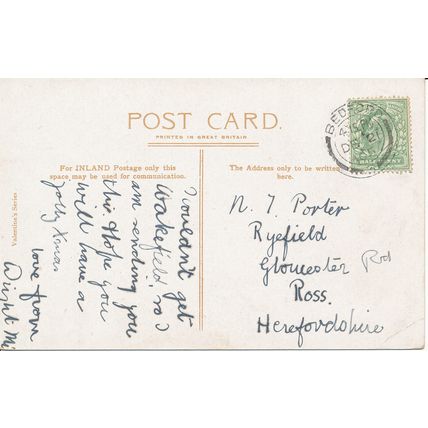 POST CARD.
PRINTED IN GREAT BRITAIN.
For INLAND Postage only this
space may be used for communication.
The Address only to be written
here.
Valentine's Series
BEDFORD
HALFPENNY
I couldn't get
Wakefield, so I
am sending you
this. Hope you
will have a
jolly Xmas
love from
N. T. Porter
Ryefield
Gloucester Rd
Ross.
Herefordshire